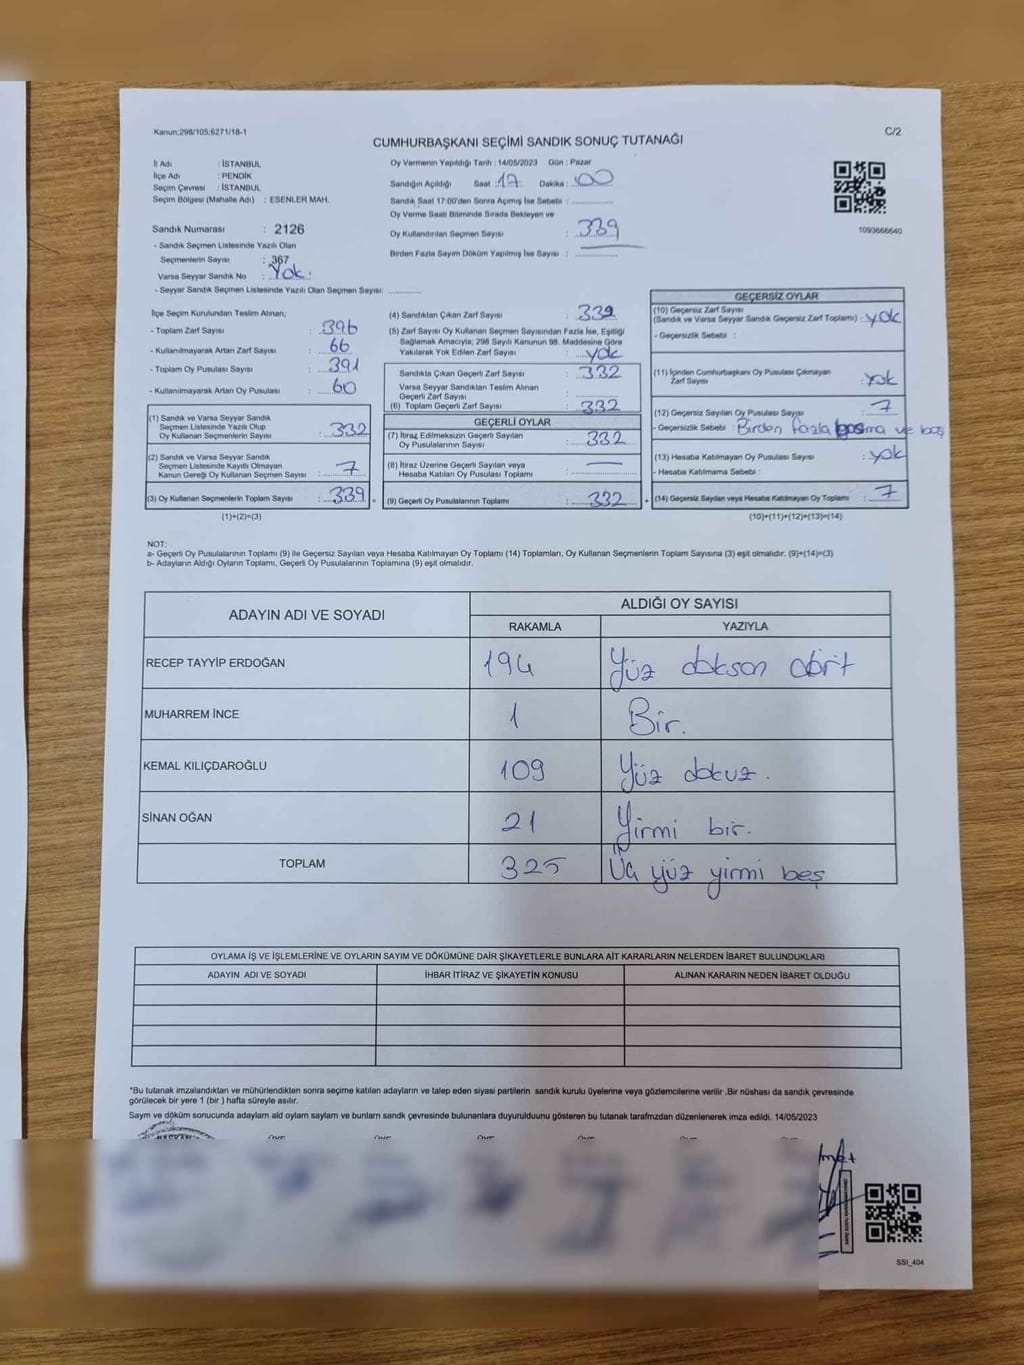 Kanun;298/105;6271/18-1
C/2
CUMHURBAŞKANI SEÇİMİ SANDIK SONUÇ TUTANAĞI
İl Adı : İSTANBUL
İlçe Adı : PENDİK
Seçim Çevresi : İSTANBUL
Seçim Bölgesi (Mahalle Adı) : ESENLER MAH.
Sandık Numarası : 2126
- Sandık Seçmen Listesinde Yazılı Olan
Seçmenlerin Sayısı : 367
Varsa Seyyar Sandık No : Yok.
- Seyyar Sandık Seçmen Listesinde Yazılı Olan Seçmen Sayısı: ............
Oy Vermenin Yapıldığı Tarih : 14/05/2023 Gün : Pazar
Sandığın Açıldığı Saat : 17 Dakika : 00
Sandık Saat 17:00'den Sonra Açılmış İse Sebebi : ...............
Oy Verme Saati Bitiminde Sırada Bekleyen ve
Oy Kullandırılan Seçmen Sayısı : 339
Birden Fazla Sayım Döküm Yapılmış İse Sayısı : ...............
1093666640
İlçe Seçim Kurulundan Teslim Alınan;
- Toplam Zarf Sayısı : 396
- Kullanılmayarak Artan Zarf Sayısı : 66
- Toplam Oy Pusulası Sayısı : 391
- Kullanılmayarak Artan Oy Pusulası : 60
(1) Sandık ve Varsa Seyyar Sandık
Seçmen Listesinde Yazılı Olup
Oy Kullanan Seçmenlerin Sayısı : 332
(2) Sandık ve Varsa Seyyar Sandık
Seçmen Listesinde Kayıtlı Olmayan
Kanun Gereği Oy Kullanan Seçmen Sayısı : 7
(3) Oy Kullanan Seçmenlerin Toplam Sayısı : 339
(1)+(2)=(3)
(4) Sandıktan Çıkan Zarf Sayısı : 339
(5) Zarf Sayısı Oy Kullanan Seçmen Sayısından Fazla İse, Eşitliği
Sağlamak Amacıyla; 298 Sayılı Kanunun 98. Maddesine Göre
Yakılarak Yok Edilen Zarf Sayısı : yok
Sandıkta Çıkan Geçerli Zarf Sayısı : 332
Varsa Seyyar Sandıktan Teslim Alınan
Geçerli Zarf Sayısı :
(6) Toplam Geçerli Zarf Sayısı : 332
GEÇERLİ OYLAR
(7) İtiraz Edilmeksizin Geçerli Sayılan
Oy Pusulalarının Sayısı : 332
(8) İtiraz Üzerine Geçerli Sayılan veya
Hesaba Katılan Oy Pusulası Toplamı : —
(9) Geçerli Oy Pusulalarının Toplamı : 332
GEÇERSİZ OYLAR
(10) Geçersiz Zarf Sayısı
(Sandık ve Varsa Seyyar Sandık Geçersiz Zarf Toplamı) : yok
- Geçersizlik Sebebi :
(11) İçinden Cumhurbaşkanı Oy Pusulası Çıkmayan
Zarf Sayısı : yok
(12) Geçersiz Sayılan Oy Pusulası Sayısı : 7
- Geçersizlik Sebebi : Birden fazla basma ve boş
(13) Hesaba Katılmayan Oy Pusulası Sayısı : yok
- Hesaba Katılmama Sebebi :
(14) Geçersiz Sayılan veya Hesaba Katılmayan Oy Toplamı : 7
(10)+(11)+(12)+(13)=(14)
NOT:
a- Geçerli Oy Pusulalarının Toplamı (9) ile Geçersiz Sayılan veya Hesaba Katılmayan Oy Toplamı (14) Toplamları, Oy Kullanan Seçmenlerin Toplam Sayısına (3) eşit olmalıdır. (9)+(14)=(3)
b- Adayların Aldığı Oyların Toplamı, Geçerli Oy Pusulalarının Toplamına (9) eşit olmalıdır.
ADAYIN ADI VE SOYADI ALDIĞI OY SAYISI
RAKAMLA YAZIYLA
RECEP TAYYİP ERDOĞAN 194 Yüz doksan dört
MUHARREM İNCE 1 Bir.
KEMAL KILIÇDAROĞLU 109 Yüz dokuz.
SİNAN OĞAN 21 Yirmi bir.
TOPLAM 325 Üç yüz yirmi beş
OYLAMA İŞ VE İŞLEMLERİNE VE OYLARIN SAYIM VE DÖKÜMÜNE DAİR ŞİKAYETLERLE BUNLARA AİT KARARLARIN NELERDEN İBARET BULUNDUKLARI
ADAYIN ADI VE SOYADI İHBAR İTİRAZ VE ŞİKAYETİN KONUSU ALINAN KARARIN NEDEN İBARET OLDUĞU
*Bu tutanak imzalandıktan ve mühürlendikten sonra seçime katılan adayların ve talep eden siyasi partilerin sandık kurulu üyelerine veya gözlemcilerine verilir .Bir nüshası da sandık çevresinde
görülecek bir yere 1 (bir ) hafta süreyle asılır.
Sayım ve döküm sonucunda adaylam ald oylarn saylarn ve bunlarn sandk çevresinde bulunanlara duyurulduunu gösteren bu tutanak tarafmzdan düzenlenerek imza edildi. 14/05/2023
SSI_404